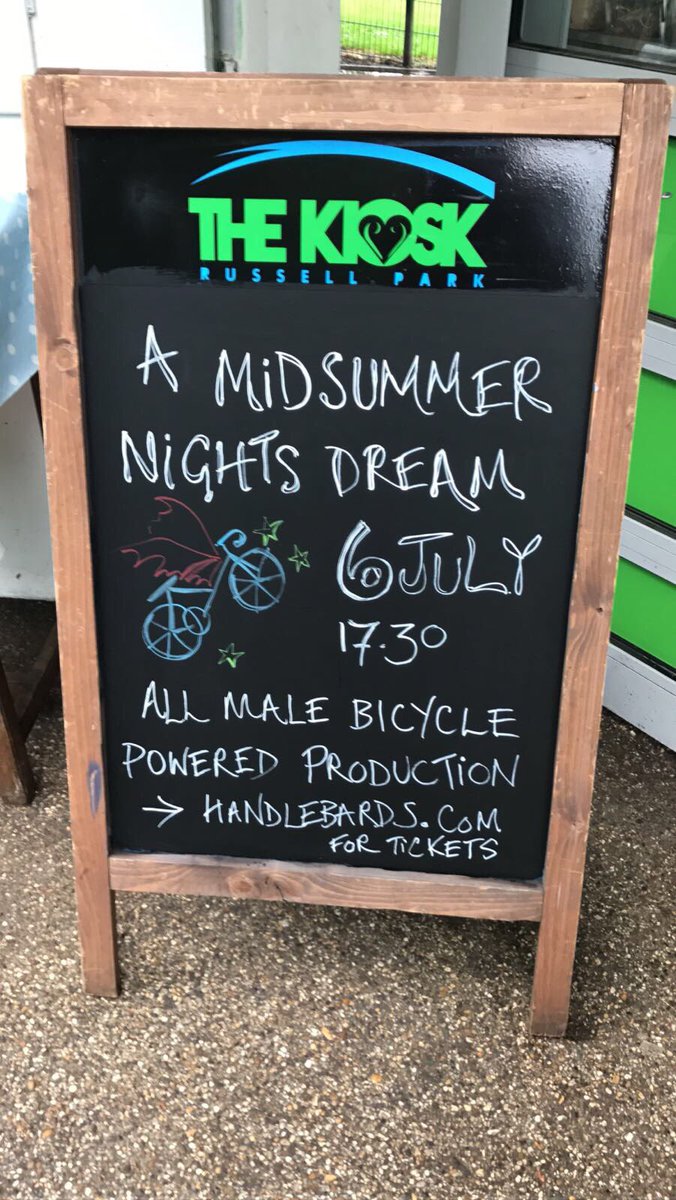 THE KIOSK
RUSSELL PARK
A MiDSUMMER
NiGHTS DREAM
6 JULY
17.30
ALL MALE BICYCLE
POWERED PRODUCTION
→ HANDLEBARDS.COM
FOR TiCKETS